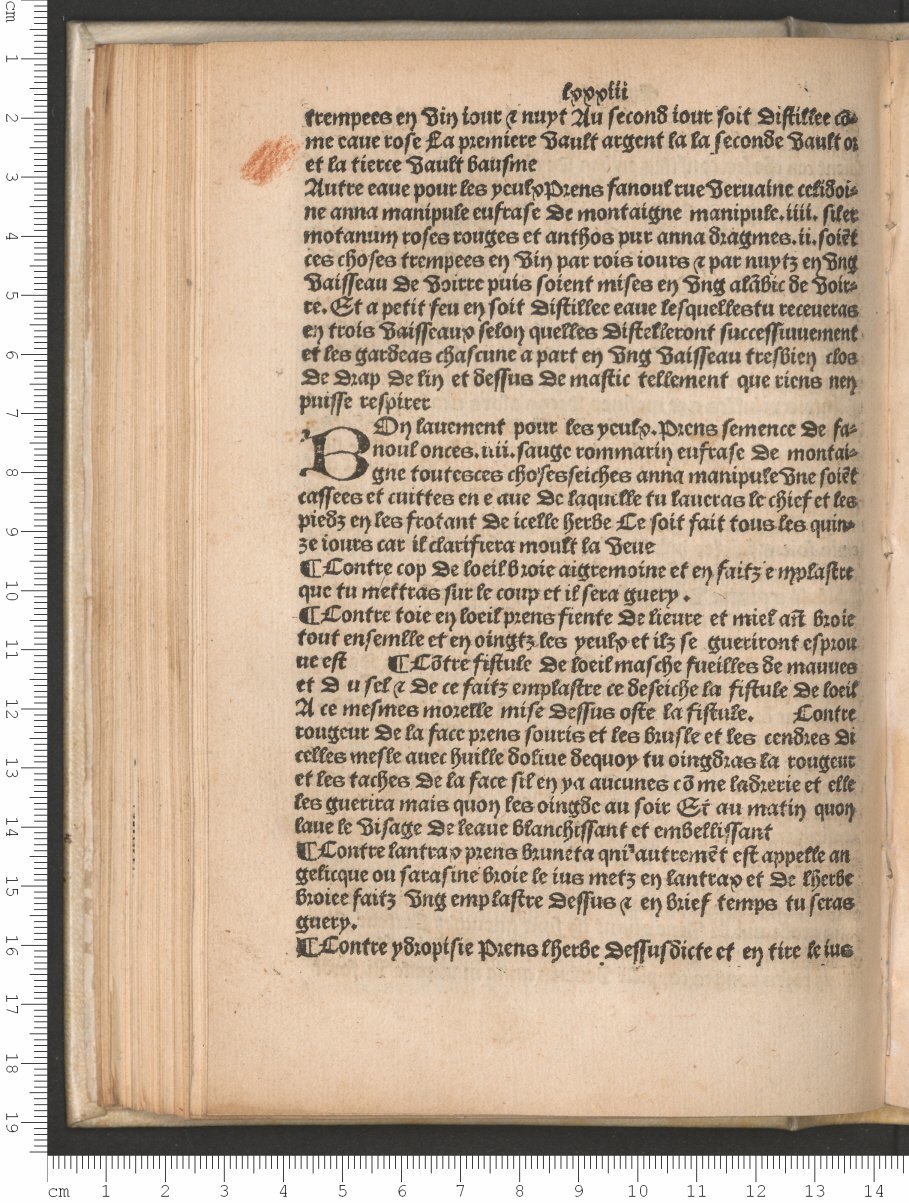 lxxxiii
trempees en vin iour ⁊ nuyt Au second iour soit distillee cõ-
me eaue rose La premiere vault argent la la seconde vault or
et la tierce vault bausme
Autre eaue pour les yeulx Prens fanoul rue veruaine celidoi-
ne anna manipule eufrase de montaigne manipule. iiii. siler
motanum roses rouges et anthos pur anna dragmes. ii. soiẽt
ces choses trempees en vin par rois iours ⁊ par nuytz en vng
vaisseau de voirre puis soient mises en vng alãbic de voir-
re. Et a petit feu en soit distillee eaue lesquelles tu receueras
en trois vaisseaux selon quelles distelleront successiuuement
et les gardeas chascune a part en vng vaisseau tresbien clos
de drap de lin et dessus de mastic tellement que riens nen
puisse respirer
BOn lauement pour les yeulx. Prens semence de fa-
noul onces. iiii. sauge rommarin eufrase de montai-
gne toutesces chosesseiches anna manipule vne soiẽt
cassees et cuittes en e aue de laquelle tu laueras le chief et les
piedz en les frotant de icelle herbe Ce soit fait tous les quin-
ze iours car il clarifiera moult la veue
¶Contre cop de loeil broie aigremoine et en faitz e mplastre
que tu mettras sur le coup et il sera guery.
¶Contre toie en loeil prens fiente de lieure et miel añ broie
tout ensemlle et en oingtz les yeulx et ilz se gueriront esprou
ue est ¶Cõtre fistule de loeil masche fueilles de mauues
et d u sel ⁊ de ce faitz emplastre ce deseiche la fistule de loeil
A ce mesmes morelle mise dessus oste la fistule. Contre
rougeur de la face prens souris et les brusle et les cendres di
celles mesle auec huille doliue dequoy tu oingdras la rougeur
et les taches de la face sil en ya aucunes cõ me ladrerie et elle
les guerira mais quon les oingde au soir Et au matin quon
laue le visage de leaue blanchissant et embellissant
¶Contre lantrax prens bruneta qui autremẽt est appelle an
gelicque ou sarasine broie le ius metz en lantrax et de lherbe
broiee faitz vng emplastre dessus ⁊ en brief temps tu seras
guery.
¶Contre ydropisie Prens lherbe dessusdicte et en tire le ius